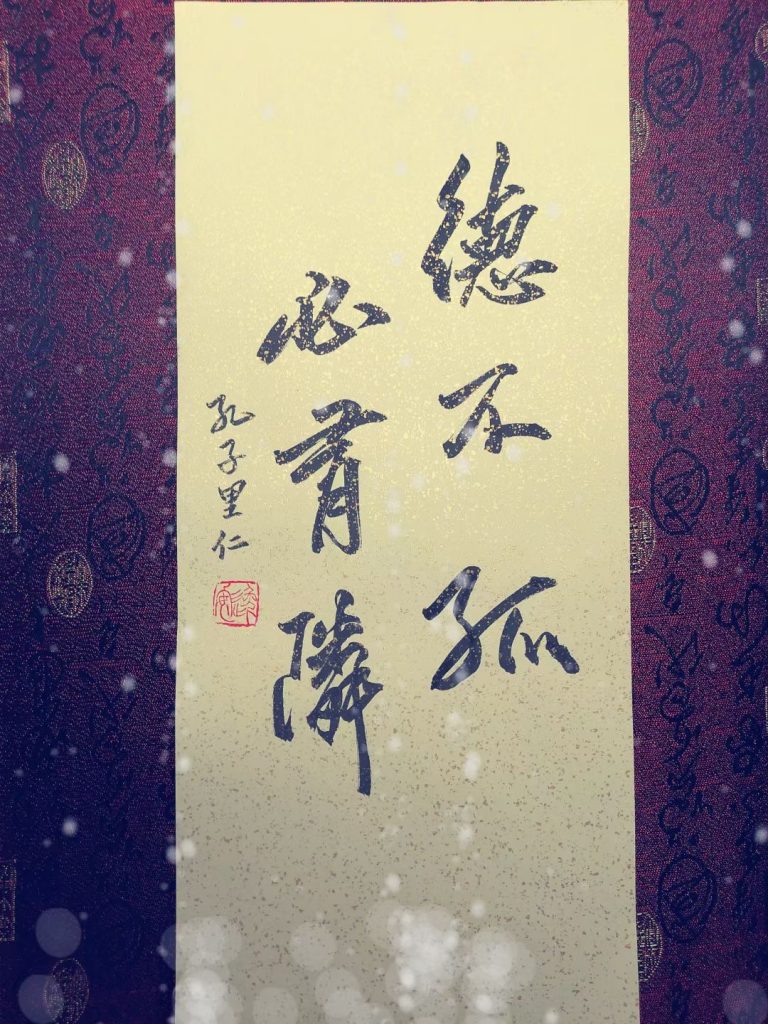 德不孤
必有隣
孔子里仁